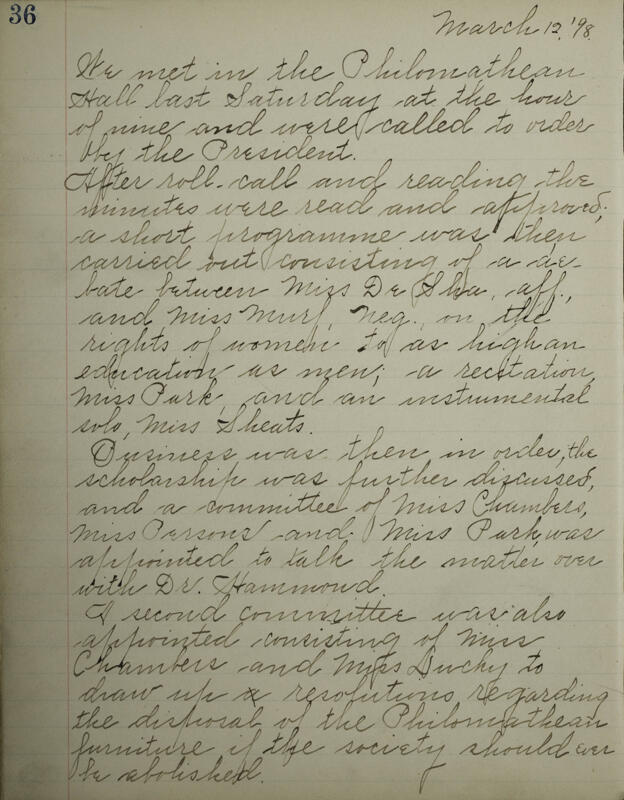 36
March 12, '98.
We met in the Philomathean
Hall last Saturday at the hour
of nine and were called to order
by the President.
After roll-call and reading the
minutes were read and approved;
a short programme was then
carried out consisting of a de-
bate between Miss De Sha, aff.,
and Miss Murf, Neg., on the
rights of women to as high an
education as men; a recitation,
Miss Park, and an instrumental
solo, Miss Sheats.
Business was then in order, the
scholarship was further discussed,
and a committee of Miss Chambers,
Miss Persons and Miss Park, was
appointed to talk the matter over
with Dr. Hammond.
A second committee was also
appointed consisting of Miss
Chambers and Miss to
draw up resolutions regarding
the disposal of the Philomathean
furniture if the society should ever
be abolished.